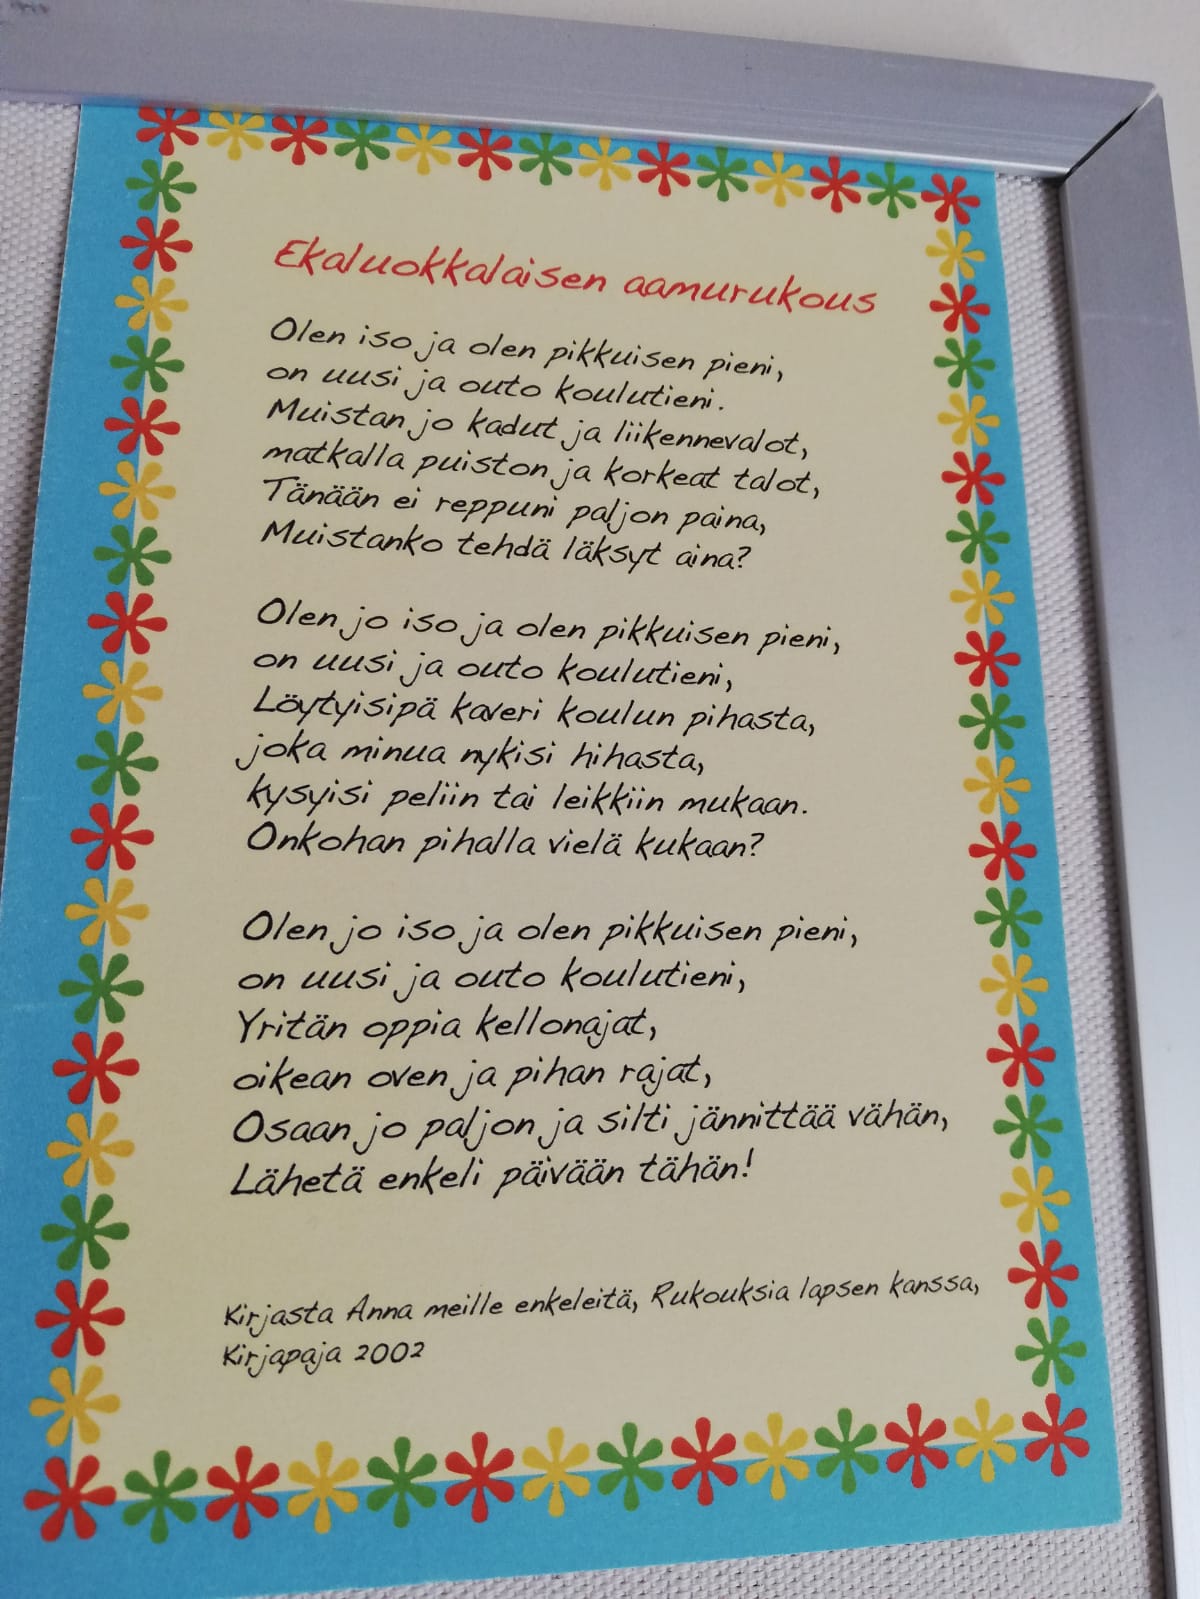 Ekaluokkalaisen aamurukous
Olen iso ja olen pikkuisen pieni,
on uusi ja outo koulutieni.
Muistan jo kadut ja liikennevalot,
matkalla puiston ja korkeat talot,
Tänään ei reppuni paljon paina,
Muistanko tehdä läksyt aina?
Olen jo iso ja olen pikkuisen pieni,
on uusi ja outo koulutieni,
Löytyisipä kaveri koulun pihasta,
joka minua nykisi hihasta,
kysyisi peliin tai leikkiin mukaan.
Onkohan pihalla vielä kukaan?
Olen jo iso ja olen pikkuisen pieni,
on uusi ja outo koulutieni,
Yritän oppia kellonajat,
oikean oven ja pihan rajat,
Osaan jo paljon ja silti jännittää vähän,
Lähetä enkeli päivään tähän!
Kirjasta Anna meille enkeleitä, Rukouksia lapsen kanssa,
Kirjapaja 2002